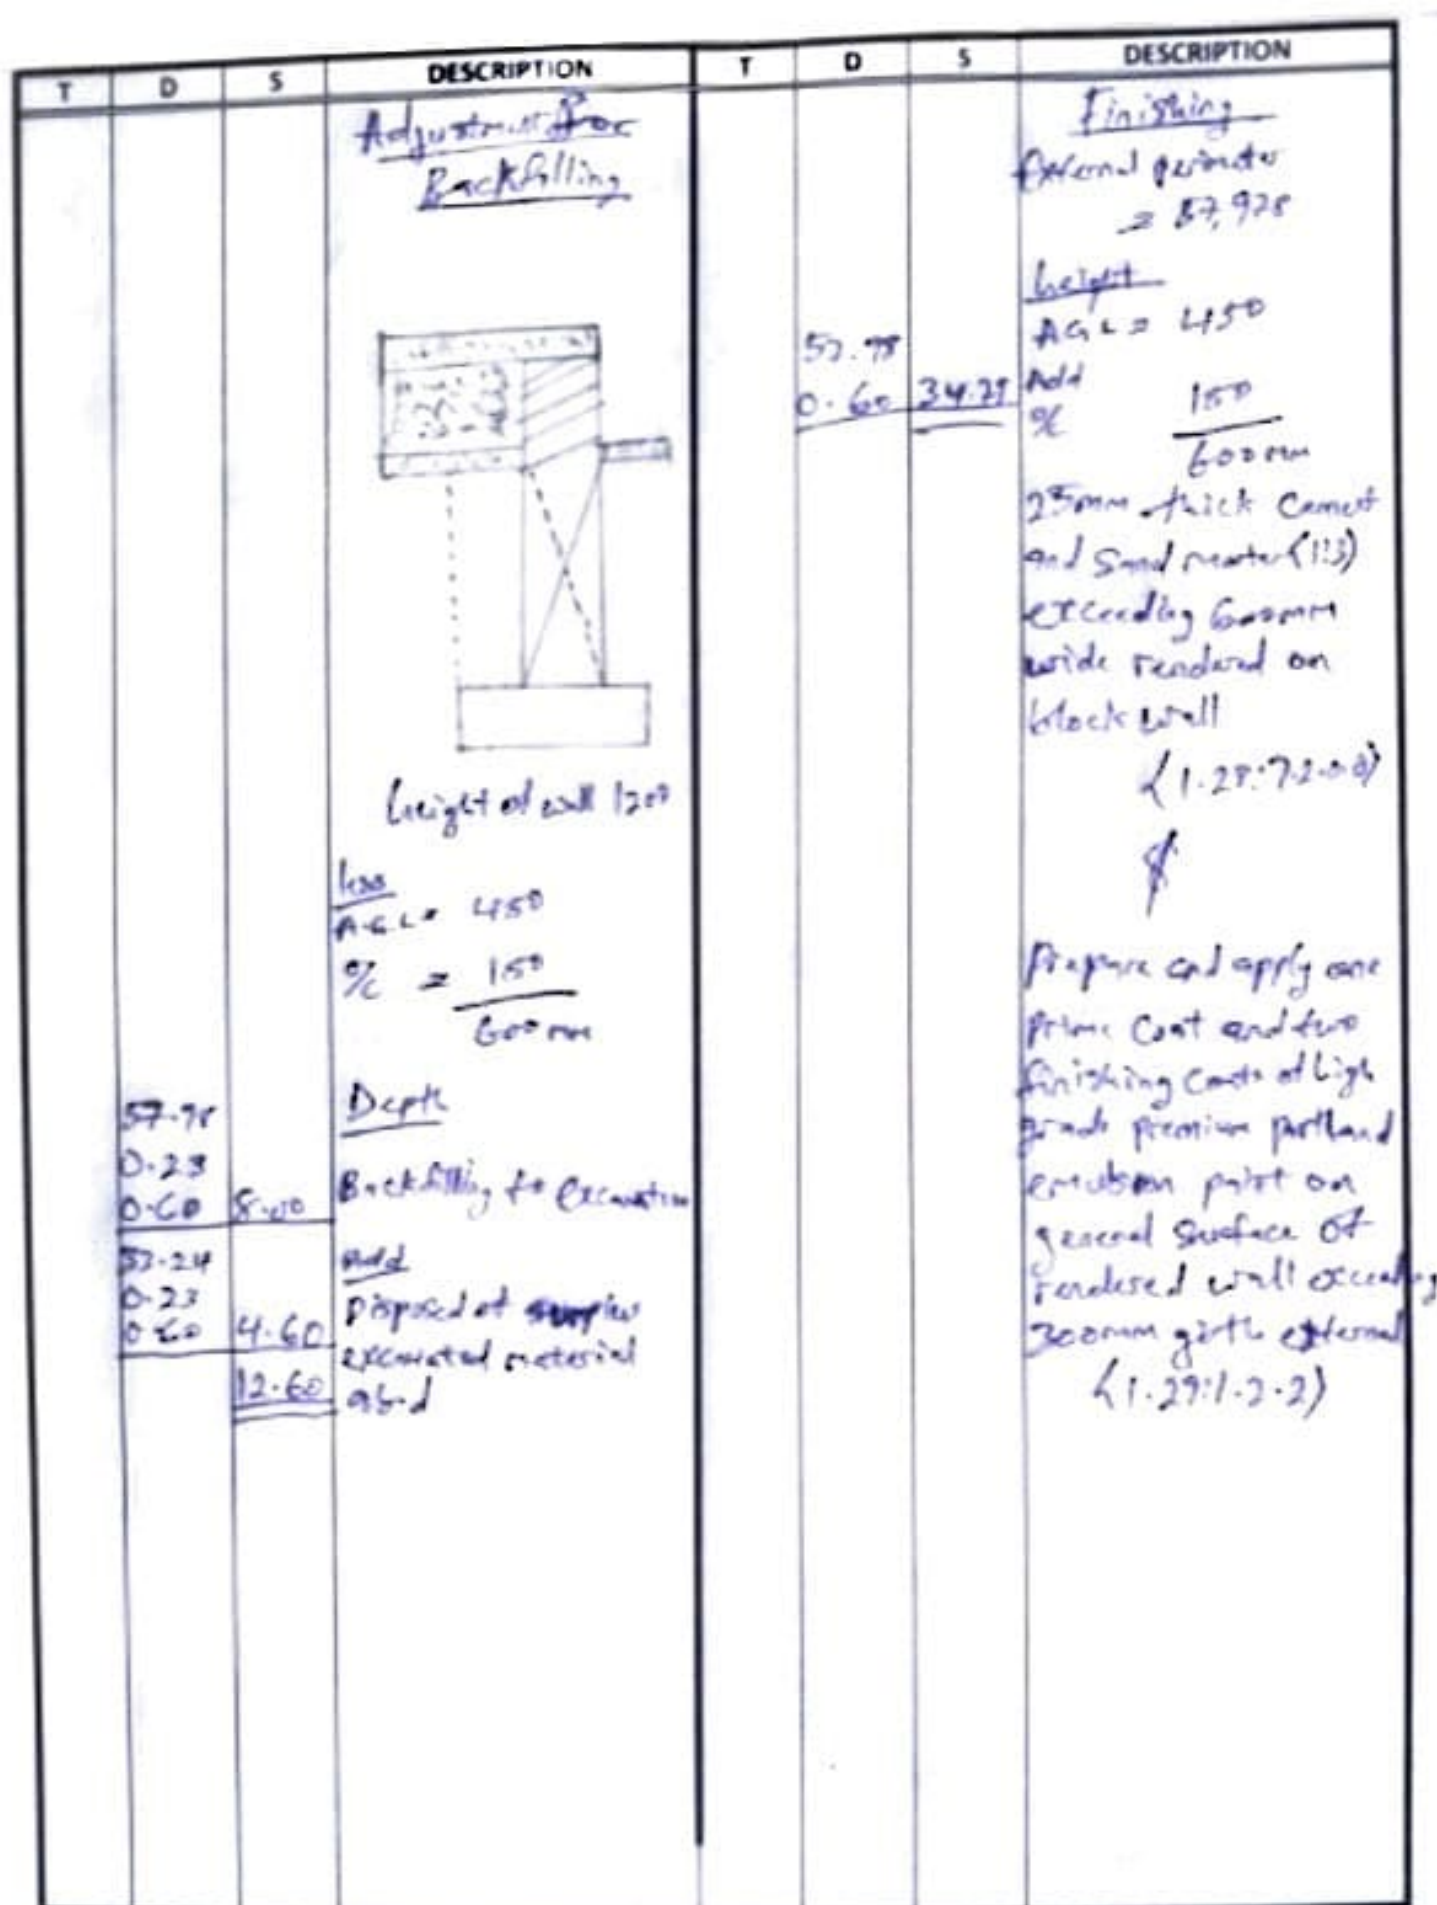 T D S DESCRIPTION T D S DESCRIPTION
Adjustment For
Backfilling
height of wall 1200
less
A.G.L = 450
% = 150
600 mm
Depth
57.98
0.23
0.60 8.00 Backfilling to excavation
53.24
0.23
0.60 4.60
12.60
Add
Disposal of
excavated material
ab.d
Finishing
External perimeter
= 57,978
height
AGL = 450
57.98
0.60 34.79
Add
% 150
600 mm
25mm thick Cement
and Sand mortar (1:3)
exceeding 600mm
wide rendered on
block wall
(1.28:7.2.0.0)
&
Prepare and apply one
prime Coat and two
finishing Coats of high
grade premium portland
emulsion paint on
general Surface of
rendered wall exceeding
300mm girth external
(1.29:1.2.2)